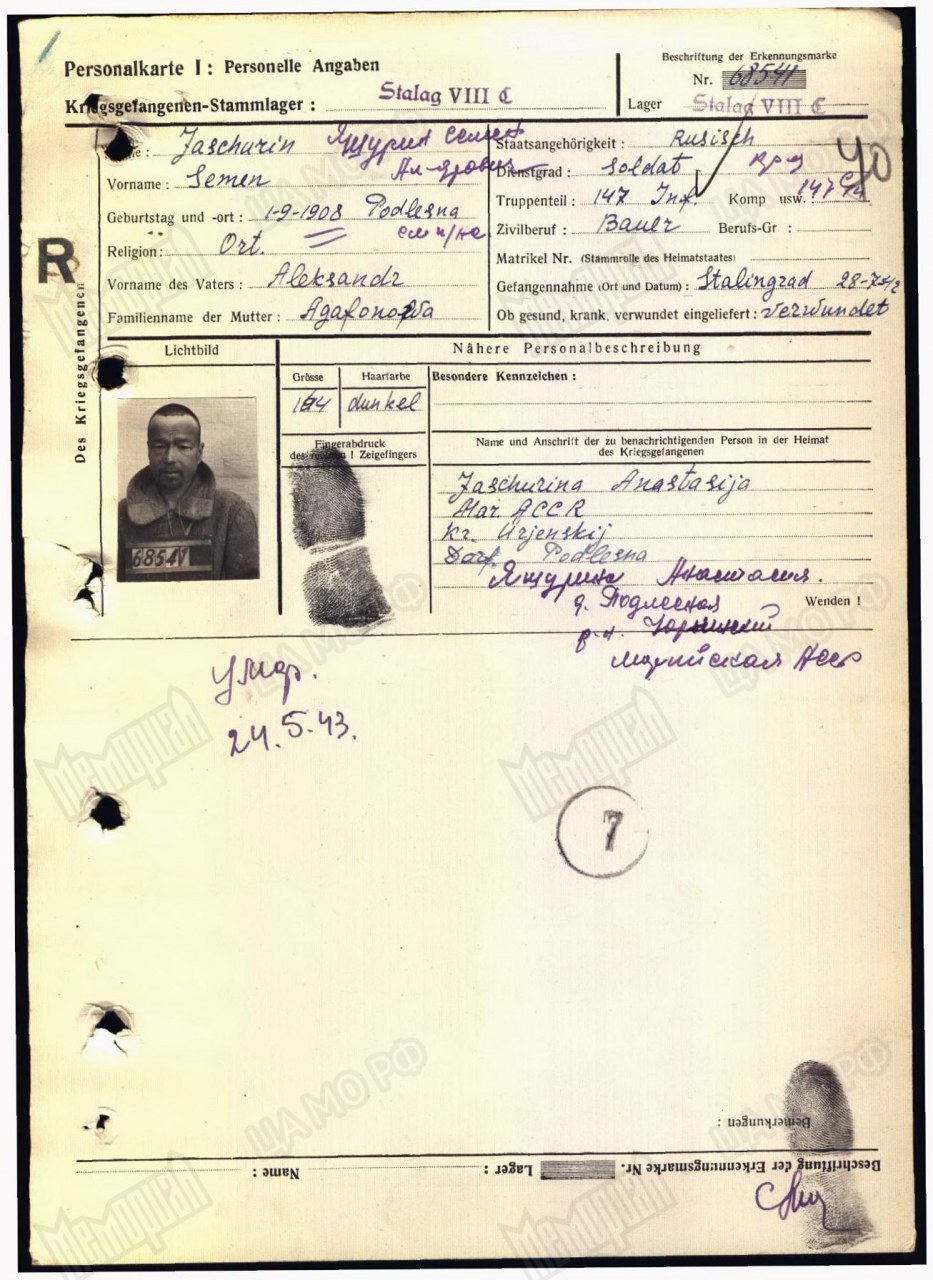 Personalkarte I: Personelle Angaben
Kriegsgefangenen-Stammlager: Stalag VIII C
Beschriftung der Erkennungsmarke
Nr. 68541
Lager Stalag VIII C
Name: Jaschurin Ящурин Семен
Vorname: Semen
Geburtstag und -ort: 1-9-1908 Podlesna
Religion: Ort.
Vorname des Vaters: Aleksandr
Familienname der Mutter: Agafonowa
Staatsangehörigkeit: Rusisch
Dienstgrad: Soldat
Truppenteil: 147 Inf. Komp usw.: 147
Zivilberuf: Bauer Berufs-Gr:
Matrikel Nr. (Stammrolle des Heimatstaates)
Gefangennahme (Ort und Datum): Stalingrad 28-7-42
Ob gesund, krank, verwundet eingeliefert: Verwundet
40
R
Des Kriegsgefangenen
Lichtbild
Nähere Personalbeschreibung
Grösse Haarfarbe Besondere Kennzeichen:
164 dunkel
Fingerabdruck
des rechten! Zeigefingers
Name und Anschrift der zu benachrichtigenden Person in der Heimat
des Kriegsgefangenen
Jaschurina Anastasija
Mar ACCR
Kr. Urjenskij
Dorf. Podlesna
Ящурина Анастасия.
д. Подлесная
р-н.
Марийская Асср
Wenden!
68541
умер.
24.5.43.
7
Bemerkungen:
Beschriftung der Erkennungsmarke Nr. Lager: Name:
Мемориал
ЦАМО РФ